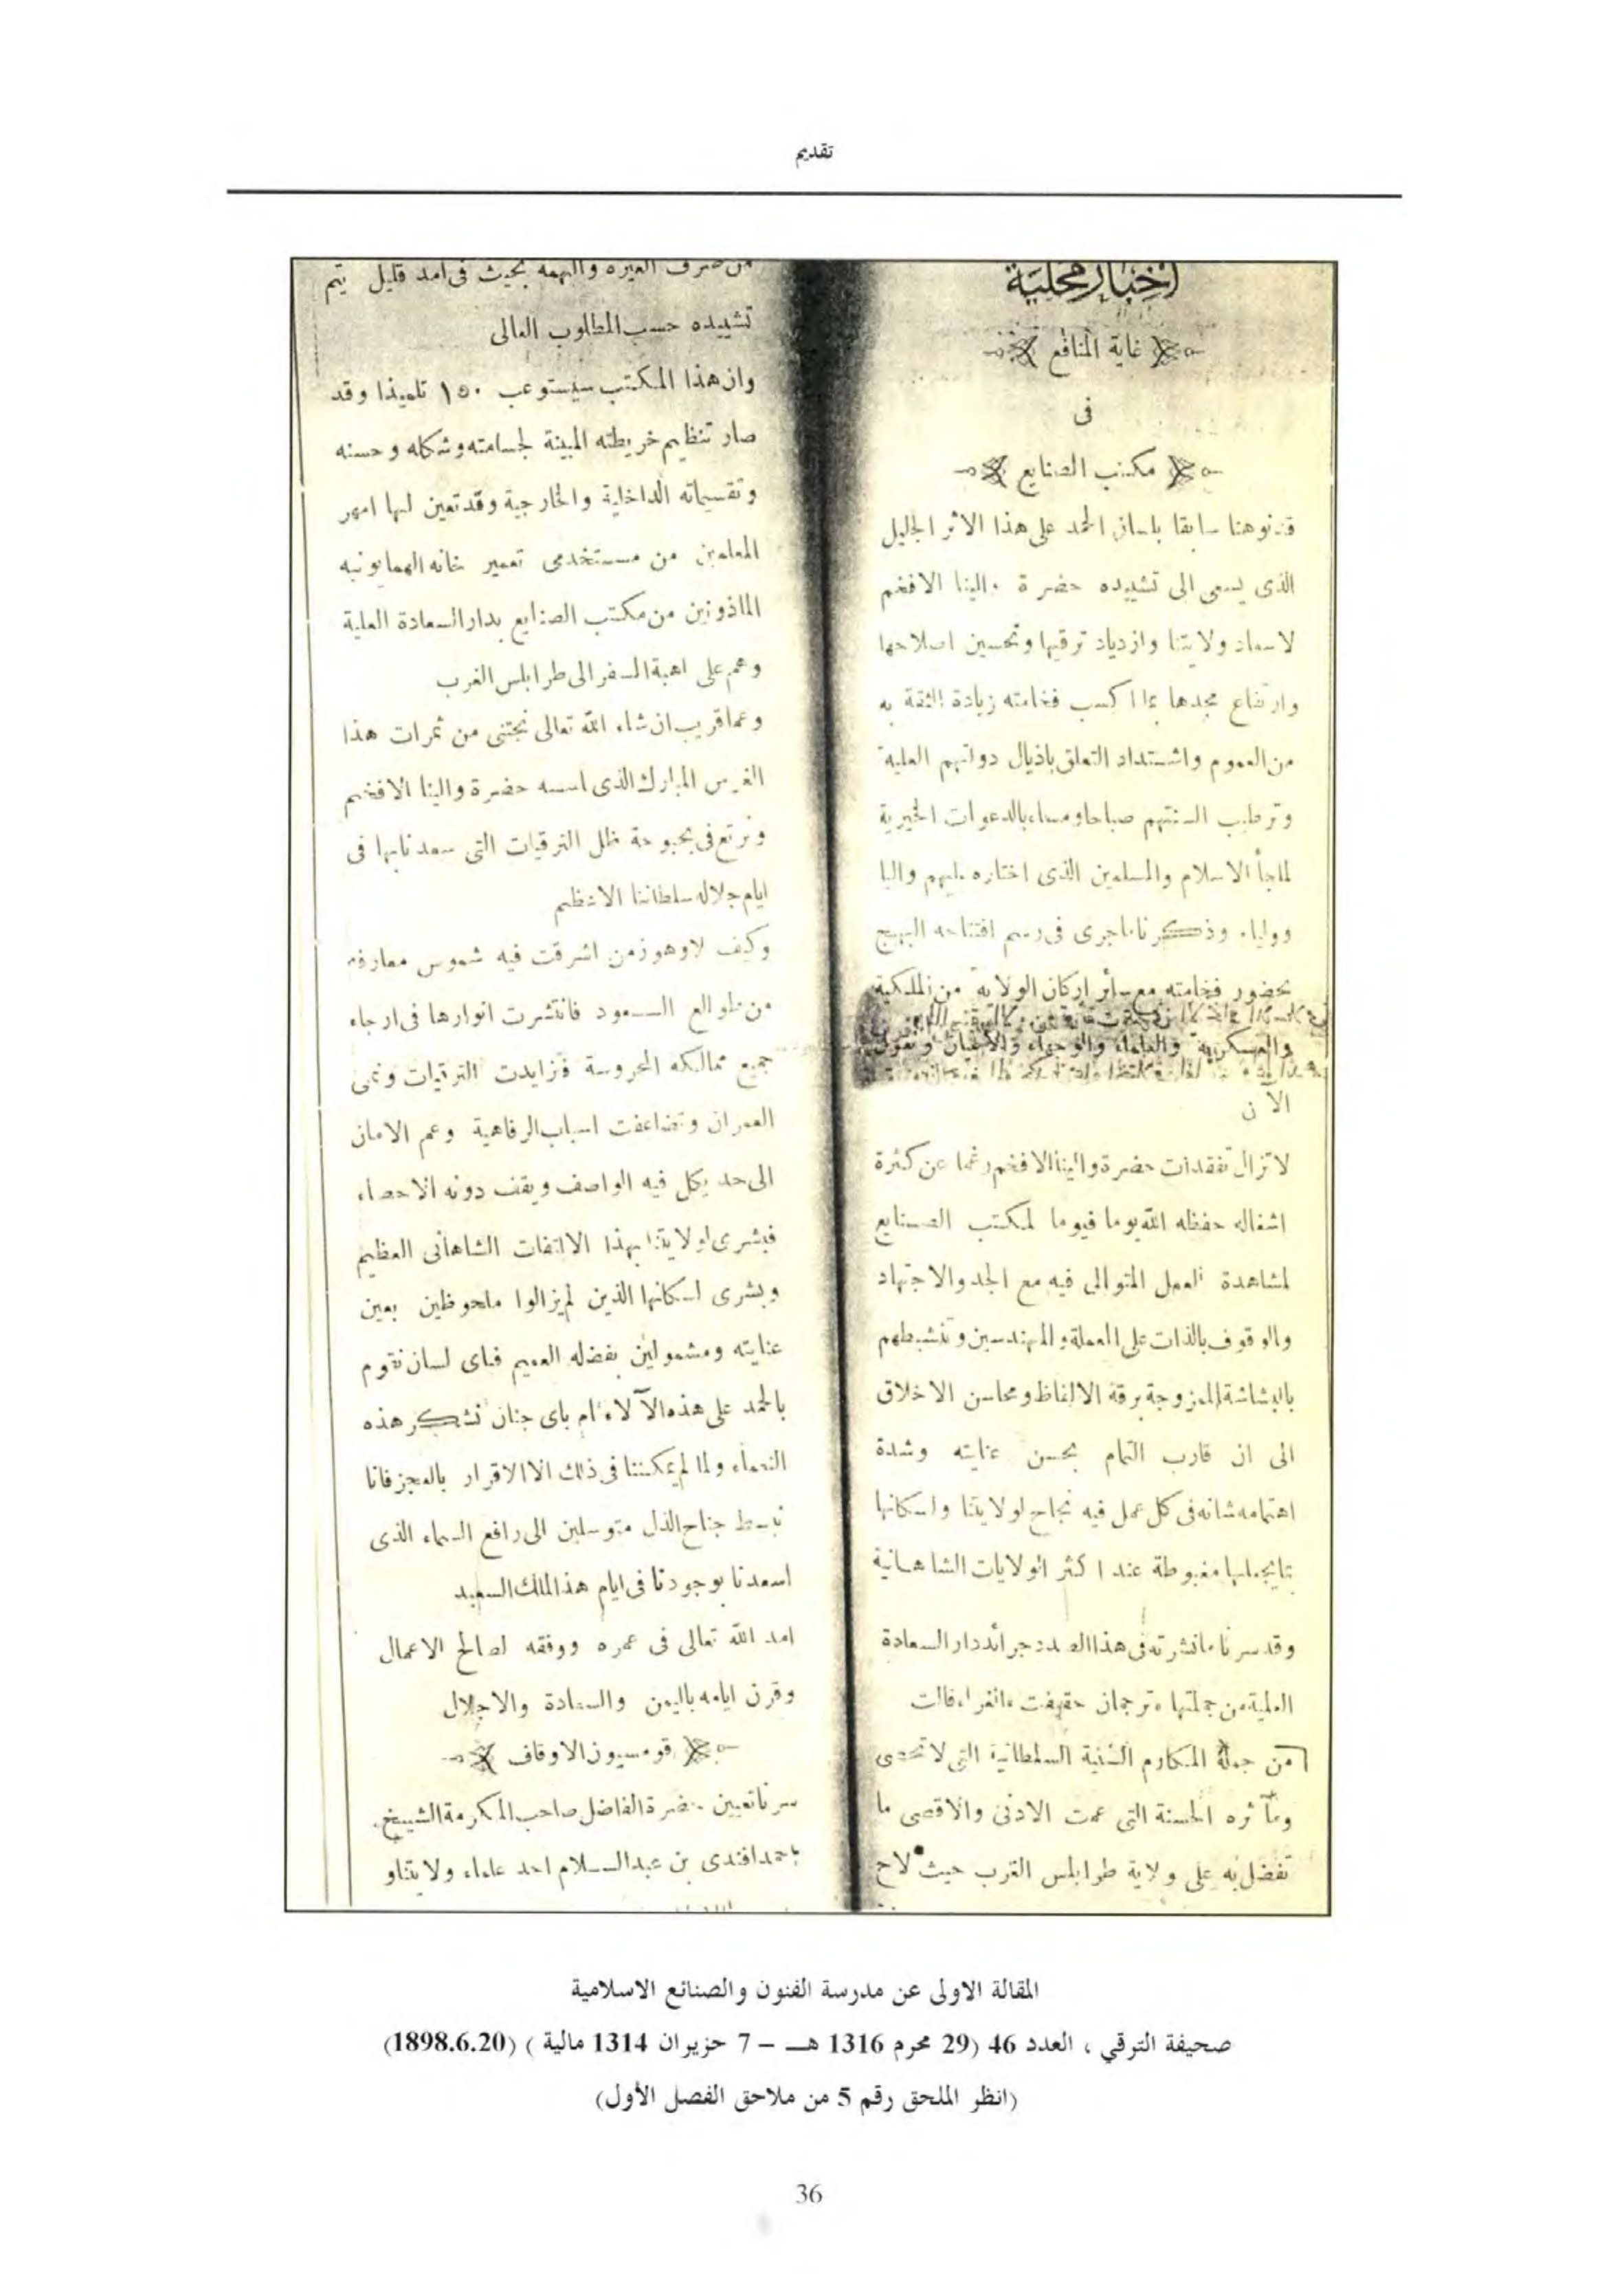 تقديم
اخبار محلية
غاية المنافع
فى
مكتب الصنايع
قد نوهنا سابقا بلسان الحمد على هذا الاثر الجليل
الذى يسعى الى تشييده حضرة والينا الافخم
لاسعاد ولايتنا وازدياد ترقيها وتحسين اصلاحها
وارتفاع مجدها مما اكسب فخامته زيادة الثقة به
من العموم واشتداد التعلق باذيال دولتهم العلية
وترطيب السنتهم صباحا ومساء بالدعوات الخيرية
لملجأ الاسلام والمسلمين الذى اختاره عليهم واليا
ووليا وذكرنا ماجرى فى رسم افتتاحه البهيج
بحضور فخامته مع سائر اركان الولاية من الملكية
والعسكرية والعلماء والوجهاء والاعيان ونقول
الآن
لاتزال تفقدات حضرة والينا الافخم رغما عن كثرة
اشغاله حفظه الله يوما فيوما لمكتب الصنايع
لمشاهدة العمل المتوالى فيه مع الجد والاجتهاد
والوقوف بالذات على العملة والمهندسين وتنشيطهم
بالبشاشة الممزوجة برقة الالفاظ ومحاسن الاخلاق
الى ان قارب التمام بحسن عنايته وشدة
اهتمامه شانه فى كل عمل فيه نجاح لولايتنا واسكانها
مغبوطة عند اكثر الولايات الشاهانية
وقد سرنا مانشرته فى هذا الصدد جرائد دار السعادة
العلية من جملتها ترجمان حقيقت الغراء قالت
من جملة المكارم السنية السلطانية التى لاتحصى
ومآثره الحسنة التى عمت الادنى والاقصى ما
تفضل به على ولاية طرابلس الغرب حيث لاح
من صرف الغيره والهمه بحيث فى امد قليل يتم
تشييده حسب المطلوب العالى
وان هذا المكتب سيستوعب ١٥٠ تلميذا وقد
صار تنظيم خريطته المبينة لجسامته وشكله وحسنه
وتقسيماته الداخلية والخارجية وقد تعين لها امهر
المعلمين من مستخدمى تعمير خانه الهمايونيه
الماذونين من مكتب الصنايع بدار السعادة العلية
وهم على اهبة السفر الى طرابلس الغرب
وعما قريب ان شاء الله تعالى نجتنى من ثمرات هذا
الغرس المبارك الذى اسسه حضرة والينا الافخم
ونرتع فى بحبوحة ظل الترقيات التى سعدنا بها فى
ايام جلاله سلطاننا الاعظم
وكيف لا وهو زمن اشرقت فيه شموس معارفه
من طوالع السعود فانتشرت انوارها فى ارجاء
جميع ممالكه المحروسة فتزايدت الترقيات ونمى
العمران وتضاعفت اسباب الرفاهية وعم الامان
الى حد يكل فيه الواصف ويقف دونه الاحصاء
فبشرى لولايتنا بهذا الالتفات الشاهانى العظيم
وبشرى اسكانها الذين لم يزالوا ملحوظين بعين
عنايته ومشمولين بفضله العميم فباى لسان نقوم
بالحمد على هذه الآلاء ام باى جنان نشكر هذه
النعماء ولما لم يمكننا فى ذلك الا الاقرار بالعجز فانا
نبسط جناح الذل متوسلين الى رافع السماء الذى
اسعدنا بوجودنا فى ايام هذا الملك السعيد
امد الله تعالى فى عمره ووفقه لصالح الاعمال
وقرن ايامه باليمن والسعادة والاجلال
قومسيون الاوقاف
سرنا تعيين حضرة الفاضل صاحب المكرمة الشيخ
احمد افندى بن عبد السلام احد علماء ولايتنا و
المقالة الاولى عن مدرسة الفنون والصنائع الاسلامية
صحيفة الترقي ، العدد 46 (29 محرم 1316 هـ – 7 حزيران 1314 مالية ) (1898.6.20)
(انظر الملحق رقم 5 من ملاحق الفصل الأول)
36